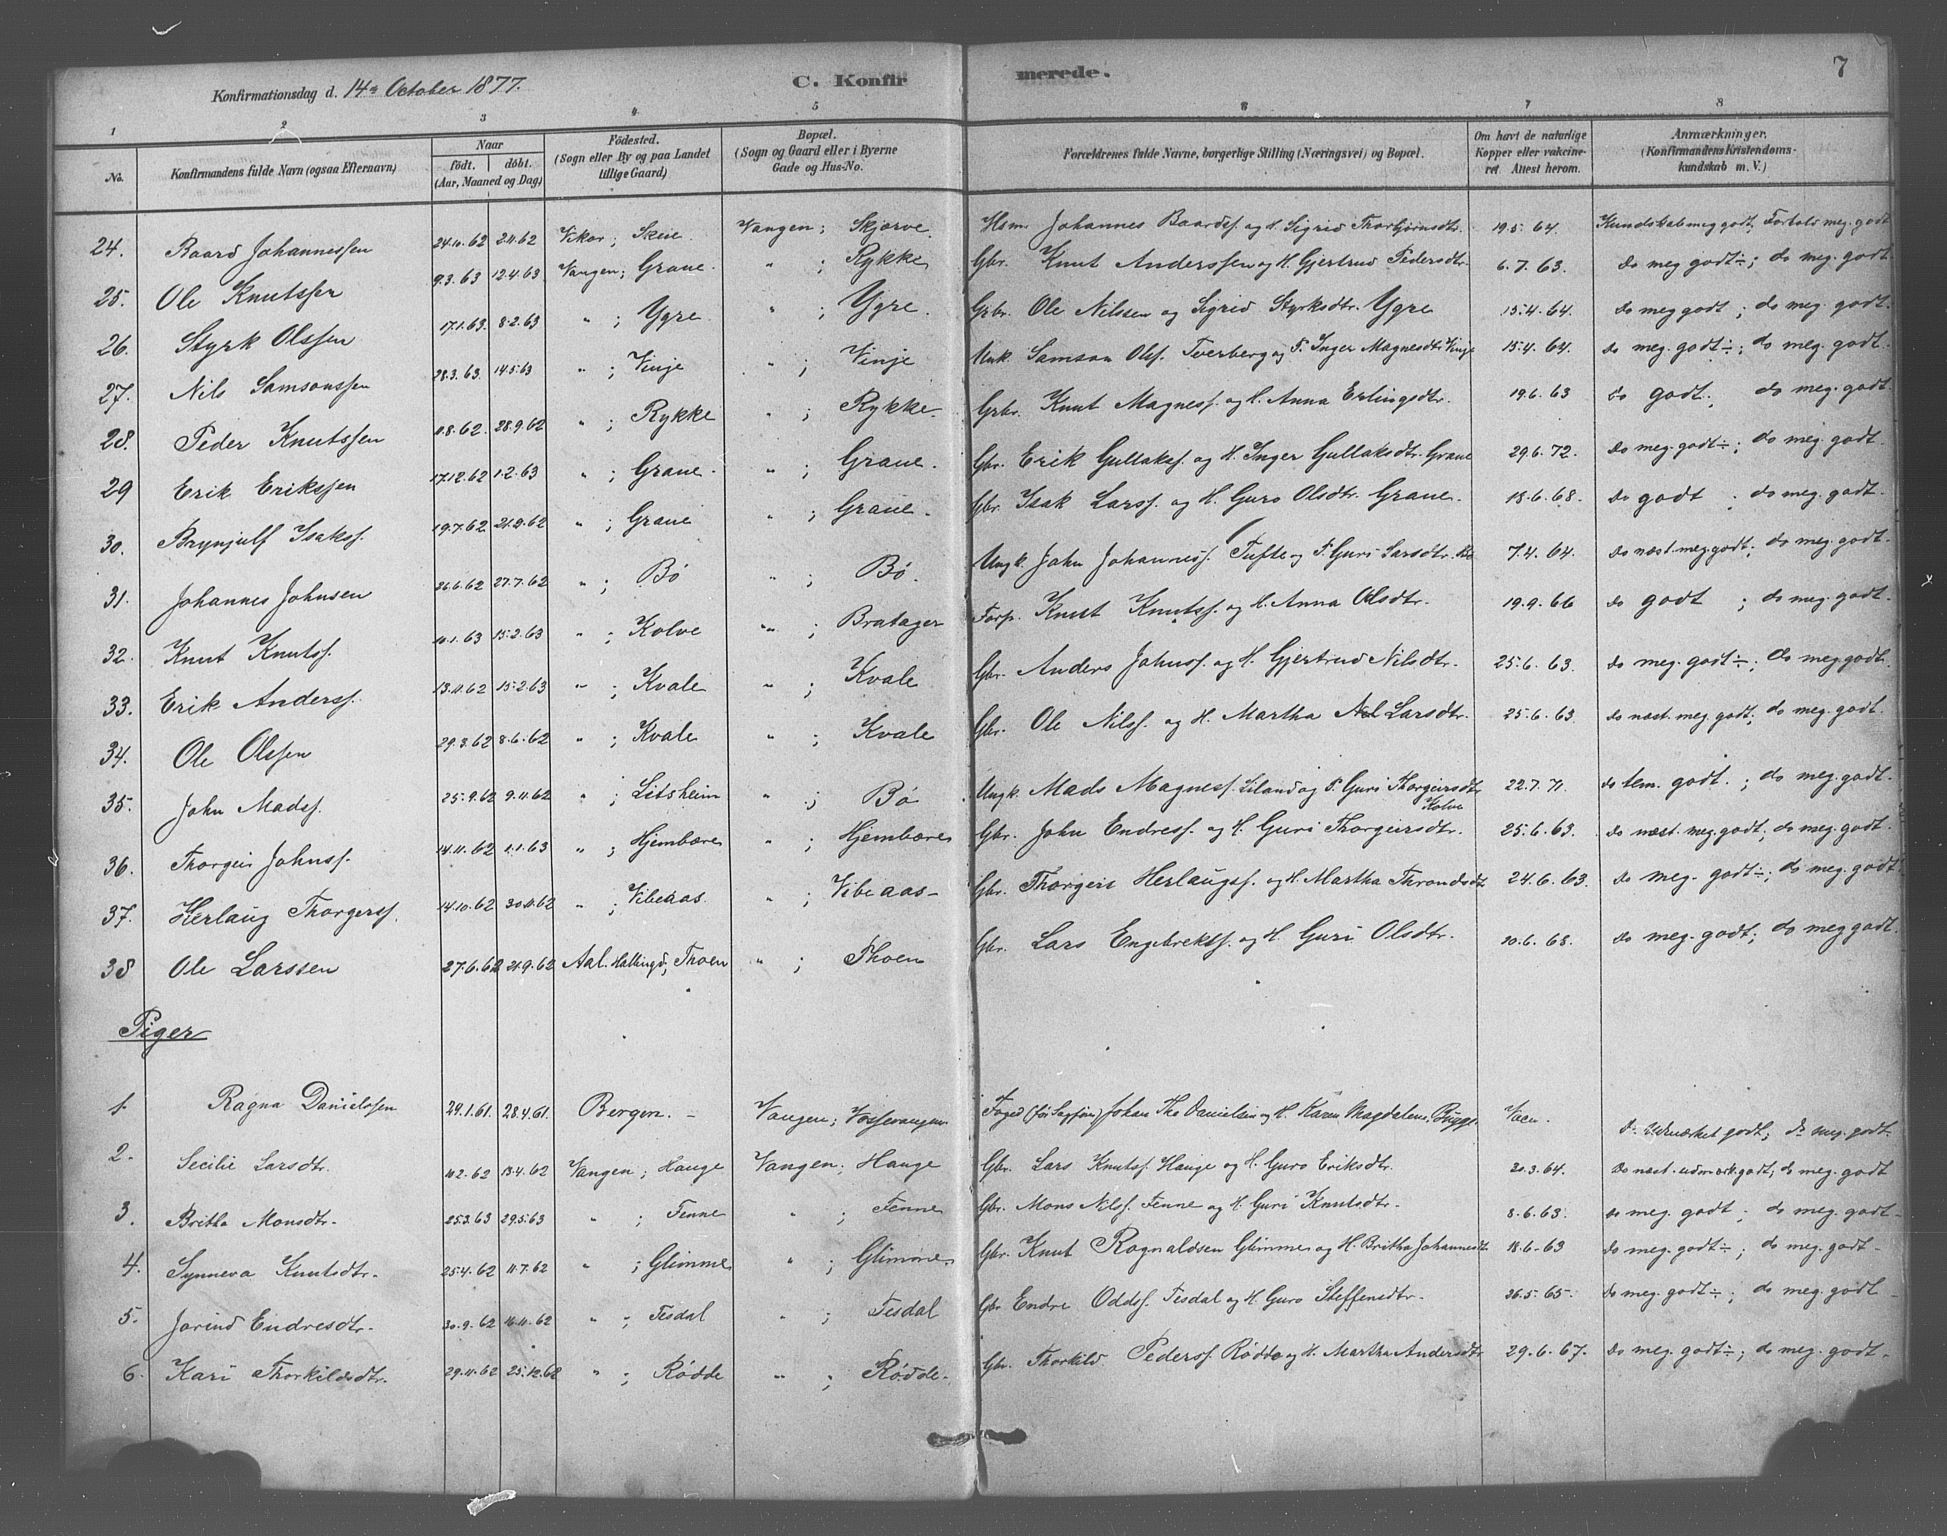 Konfirmationsdag d. 14de October 1877.
C. Konfirmerede.
7
1 2 3 4 5 6 7 8
No. Konfirmandens fulde Navn (ogsaa Efternavn) Naar født. døbt. (Aar, Maaned og Dag) Fødested. (Sogn eller By og paa Landet tillige Gaard) Bopæl. (Sogn og Gaard eller i Byerne Gade og Hus-No. Forældrenes fulde Navne, borgerlige Stilling (Næringsvei) og Bopæl. Om havt de naturlige Kopper eller vakcineret Attest herom. Anmærkninger. (Konfirmandens Kristendomskundskab m. V.)
24. Baard Johannessen 24.10.62 2.11.62 Vikør; Skeie. Vangen; Skjerve. Hsm. Johannes Baardsf. og H. Sigrid Thorbjørnsdtr. 19.5.64. Kundskab meg godt; Forhold meg. godt
25. Ole Knutssen 9.3.63 12.4.63 Vangen; Graue. " ; Rykke Gbr. Knut Anderssen og H. Gjertrud Pedersdtr. 6.7.63. do meg godt÷; do meg. godt.
26. Styrk Olssen 17.1.63 8.2.63 " ; Ygre " ; Ygre. Gbr. Ole Nilssen og Sigrid Styrksdtr. Ygre 15.4.64. do meg godt; do meg. godt.
27. Nils Samsonssen 28.3.63. 14.5.63 " ; Vinje " ; Vinje Unk. Samson Olsf. Tverberg og P. Inger Magnesdtr. Vinje 15.4.64 do meg. godt÷; do meg. godt.
28. Peder Knutssen 11.8.62. 28.9.62 " ; Rykke " ; Rykke. Gbr. Knut Magnesf. og H. Anna Erlingsdtr. 19.6.63 do godt; do meg. godt.
29 Erik Erikssen 17.12.62 1.2.63 " ; Graue. " ; Graue. Gbr. Erik Gullaksf. og H. Inger Gullaksdtr. Graue 29.6.72. do meg. godt÷; do meg. godt.
30. Brynjulf Isaksf. 19.7.62 21.9.62 " ; Graue " ; Graue. Gbr. Isak Larsf. og H. Guro Olsdtr. Graue. 18.6.68. do godt; do meg. godt.
31. Johannes Johnsen 26.6.62 27.7.62 " ; Bø " ; Bø. Ungk. John Johannesf. Tufte og P. Guri Larsdtr. Bø 7.4.64. do næst. meg godt; do meg. godt.
32. Knut Knutsf. 10.1.63 15.2.63 " ; Kolve " ; Bratager Forp. Knut Knutsf. og H. Anna Olsdtr. 19.9.66 do godt; do meg. godt.
33. Erik Andersf. 13.11.62 15.2.63 " ; Kvale " ; Kvale Gbr. Anders Johnsf. og H. Gjertrud Nilsdtr. 25.6.63. do meg. godt÷; do meg godt.
34. Ole Olssen 29.3.62 8.6.62 " ; Kvale " ; Kvale Gbr. Ole Nilsf. og H. Martha Larsdtr. 25.6.63. do næst. meg. godt; do meg. godt.
35. John Madsf. 25.9.62 9.11.62 " ; Litsheim " ; Bø Ungk. Mads Magnesf. Liland og P. Guri Thorgiersdtr. Kolve 22.7.71. do tem. godt.; do meg. godt.
36. Thorgeir Johnsf. 14.11.62 1.1.63 " ; Hjembære " ; Hjembære Gbr. John Endresf. og H. Guri Thorgiersdtr. 25.6.63. do næst. meg. godt; do meg. godt.
37. Herlaug Thorgersf. 14.10.62 30.11.62 " ; Vibeaas. " ; Vibeaas Gbr. Thorgeir Herlaugsf. og H. Martha Throndsdtr. 24.6.63. do meg. godt÷; do meg. godt
38 Ole Larssen 27.6.62 21.9.62 Aal. Hallingd; Thoen " ; Thoen Gbr. Lars Engebrektsf. og H. Guri Olsdtr. 10.6.68. do meg. godt; do meg godt.
Piger
1. Ragna Danielssen 29.1.61. 28.4.61. Bergen. – Vangen; Vossevangen Foged Johan Danielsen og H. Karen Magdalene Bugge. Vacc. do udmærket godt; do meg. godt
2. Secilie Larsdtr. 10.2.62 13.4.62 Vangen; Hauge Vangen; Hauge Gbr. Lars Knutsf. Hauge og H. Guro Eriksdtr. 20.3.64. do næst. udmærk. godt; do meg. godt
3. Britha Monsdtr. 25.3.63 29.5.63 " ; Tenne " ; Tenne Gbr. Mons Nilsf. Tenne og H. Guri Knutsdtr. 8.6.63. do meg. godt; do meg. godt
4. Synneva Knutsdtr. 25.4.62 11.7.62 " ; Glimme " ; Glimme Gbr. Knut Ragnaldsen Glimme og H. Britha Johannesdtr. 18.6.63 do meg. godt÷; do meg. godt
5. Jorind Endresdtr. 30.9.62 16.11.62 " ; Tesdal " ; Tesdal Gbr. Endre Oddsf. Tesdal og H. Guro Steffensdtr. 26.5.65. do meg. godt÷; do meg. godt
6. Kari Thorkildsdtr. 29.11.62 25.12.62 " ; Rødde " ; Rødde. Gbr. Thorkild Pedersf. Rødde og H. Martha Andersdtr 29.6.67. do meg. godt÷; do meg. godt